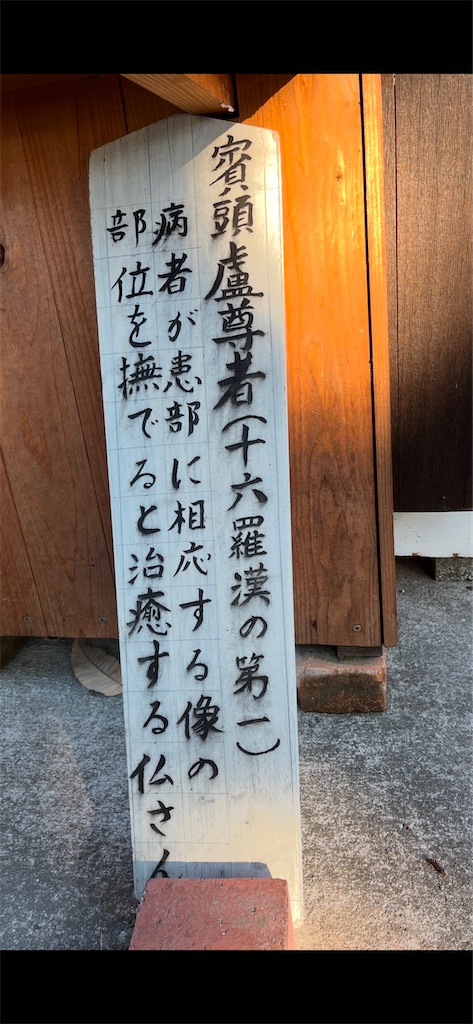 賓頭盧尊者(十六羅漢の第一)
病者が患部に相応する像の
部位を撫でると治癒する仏さん